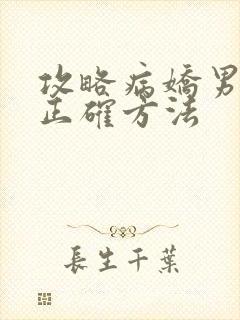 攻略病嬌男
正確方法
長生千葉